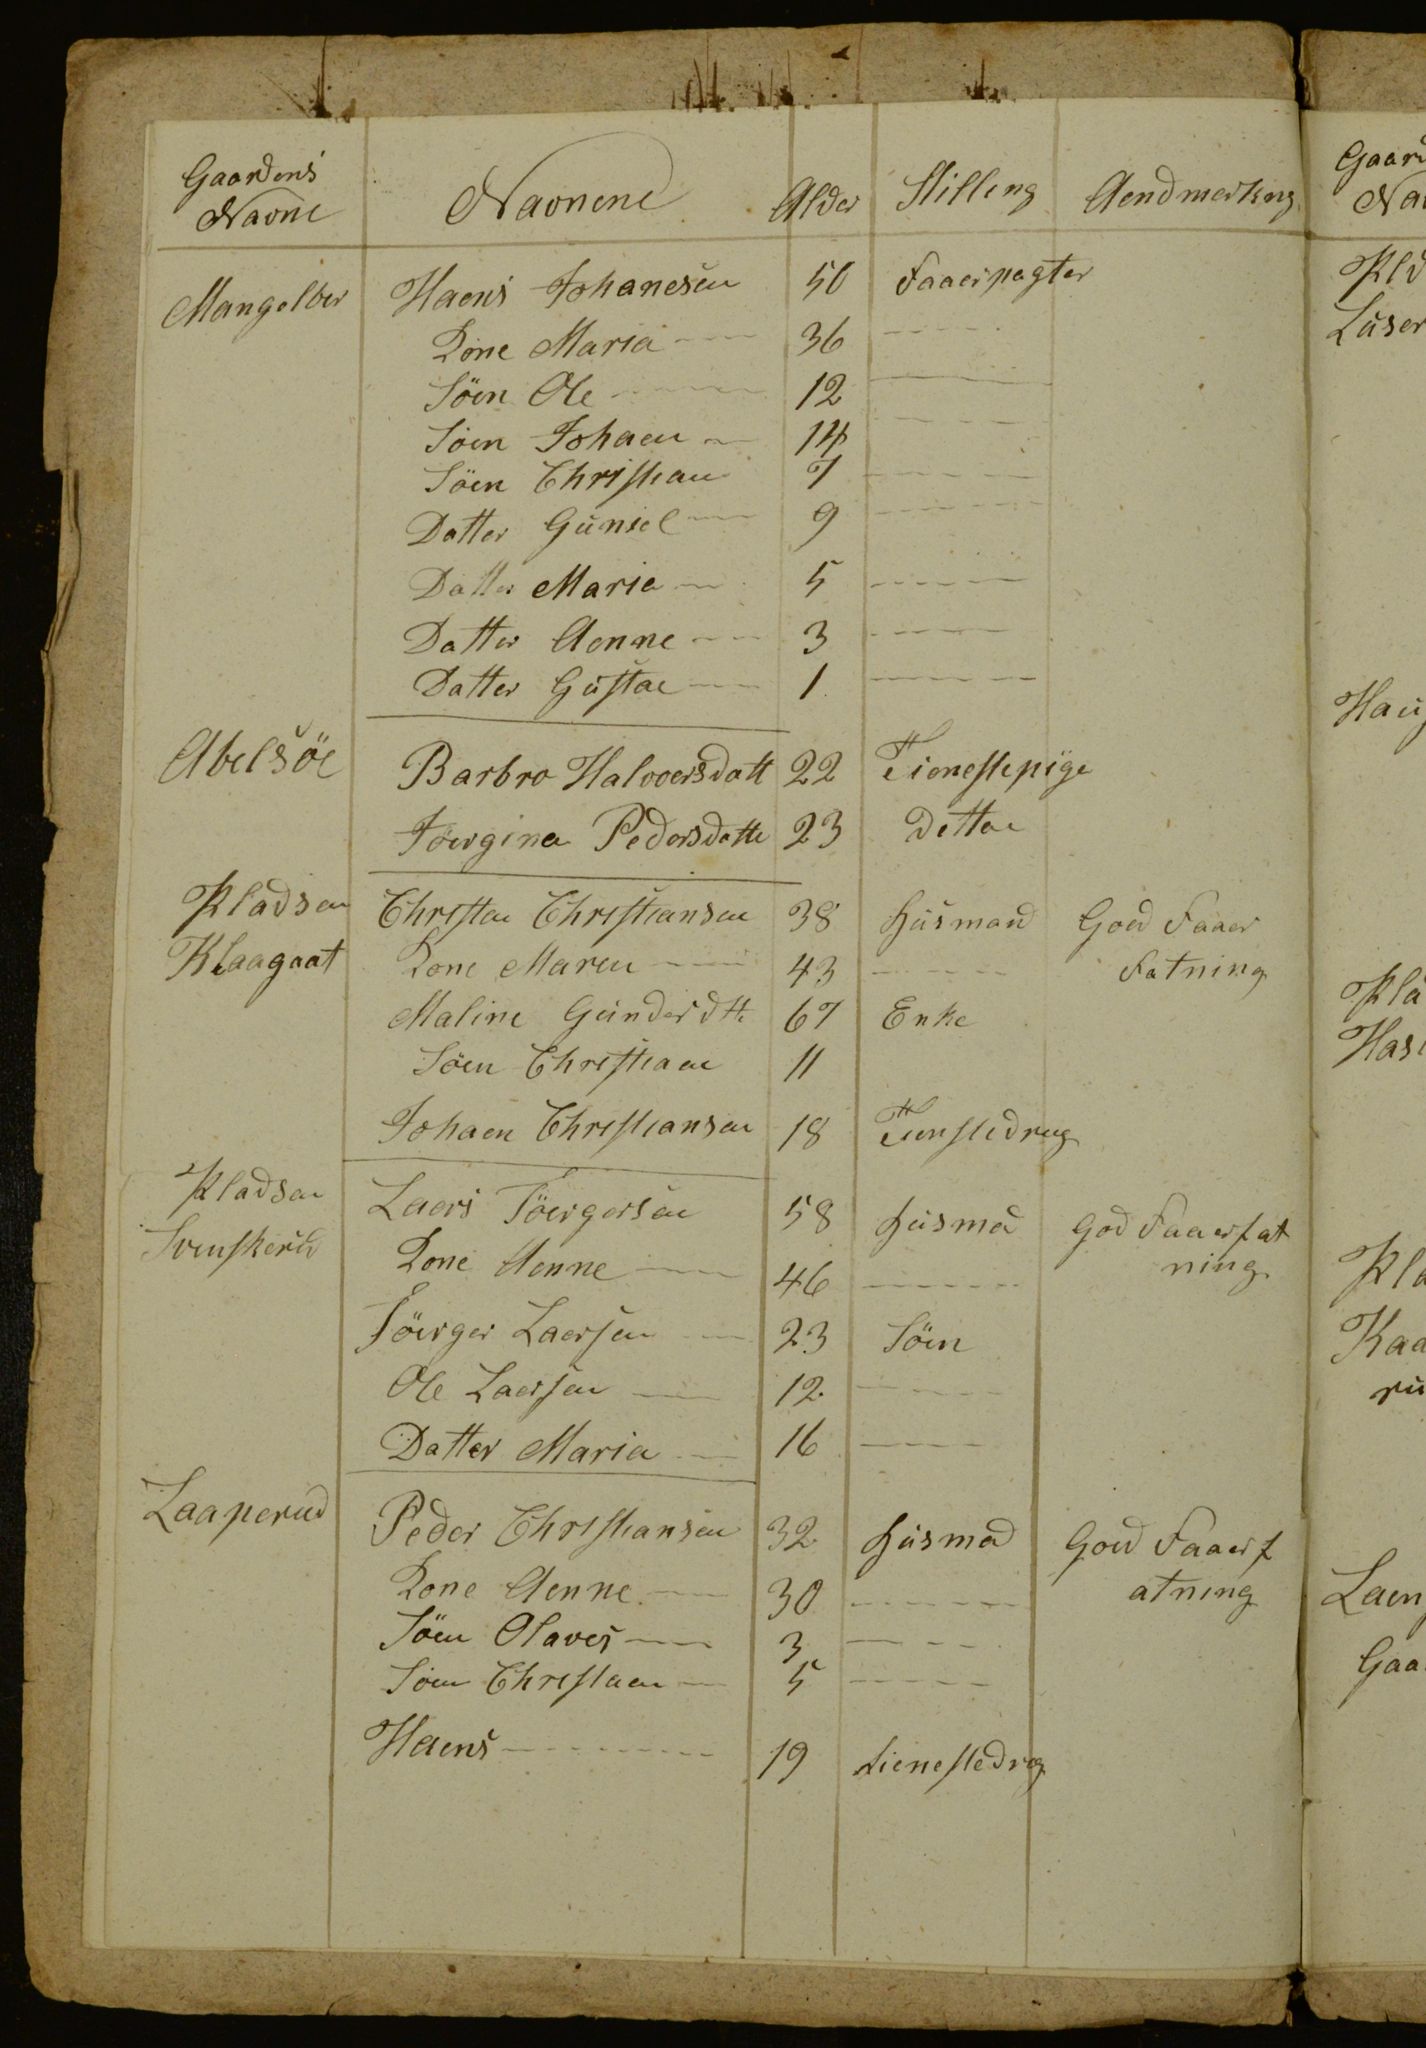 Gaardens Navne Navnene Alder Stilling Aendmerkning
Mangelber Haens Johanesen 50 Faaerpagter
Kone Maria 36
Söen Ole 12
Söen Johaen 14
Söen Christian 7
Datter Guniel 9
Datter Maria 5
Datter Aenne 3
Datter Gustae 1
Abelsöe Barbro Halvoersdatt 22 Tienestepige
Jöergina Pedersdatte 23 Dettoe
Pladsen Christen Christiansen 38 Husmand Goed Faaer
Klaagaat Kone Maren 43 Fatning
Maline Gunderdtt 67 Enke
Söen Christiaen 11
Johaen Christiansen 18 Tienstedreng
Pladsen Laers Jöergersen 58 Husmad God Faaerfat
Svenskerud Kone Aenne 46 ning
Jöerger Laersen 23 Söen
Ole Laersen 12
Datter Maria 16
Laaperud Peder Christiansen 32 Husmad Goed Faaerf
Kone Aenne 30 atning
Söen Olaves 3
Söen Christaen 5
Haens 19 tienestedrng
Gaard
Nav
Pld
Luser
Haug
Pla
Hasl
Pla
Kaa
ru
Laen
Gaa